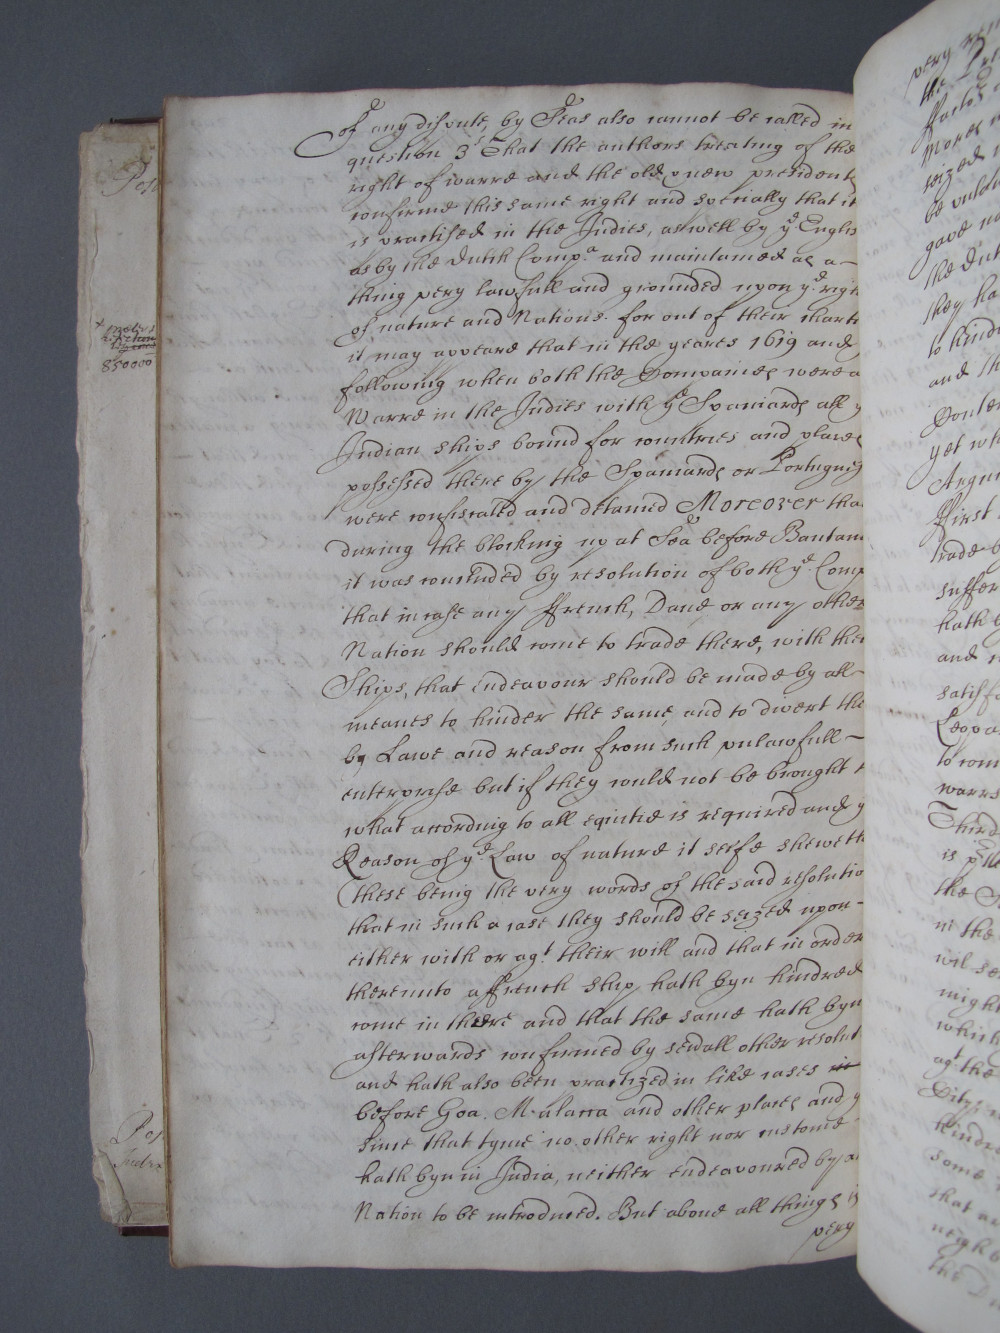 of any dispute, by Seas also cannot be called in
question 3d That the authors treating of the
right of warre and the old & new presidents
confirme this same right and specially that it
is practised in the Indies, aswell by ye Englis
as by the Dutch Compa and maintained as a
thing very lawfull and grounded upon ye righ
of nature and Nations. for out of their charte
it may appeare that in the yeares 1619 and
following when both the Companies were a
Warre in the Indies with ye Spaniards all y
Indian ships bound for countries and places
possessed there by the Spaniards or Portugui
were confiscated and detained Moreover tha
during the blocking up at Sea before Bantam
it was concluded by resolution of both ye Comp
that in case any French, Dane or any other
Nation should come to trade there, with thei
Ships, that endeavour should be made by all
meanes to hinder the same, and to divert the
by Lawe and reason from such unlawfull
enterprise but if they could not be brought t
what according to all equitie is required and y
Reason of ye Law of nature it selfe sheweth
These being the very words of the said resolutio
that in such a case they should be seized upon
either with or agt their will and that in order
thereunto a French ship hath byn hindred
come in there and that the same hath byn
afterwards confirmed by sevall other resolut
and hath also been practized in like cases in
before Goa. Malacca and other places and y
since that tyme no other right nor custome
hath byn in India, neither endeavoured by a
Nation to be introduced. But above all things i
very
850000
very
the
gave
the Dut
they ha
to hind
and th
yet wh
Argu
First
trade b
suffer
hath
and
satisf
Leopa
to com
warrs
Third
is
the S
in the
wil se
might
which
agt the
hindr
some
that
neigh
the D